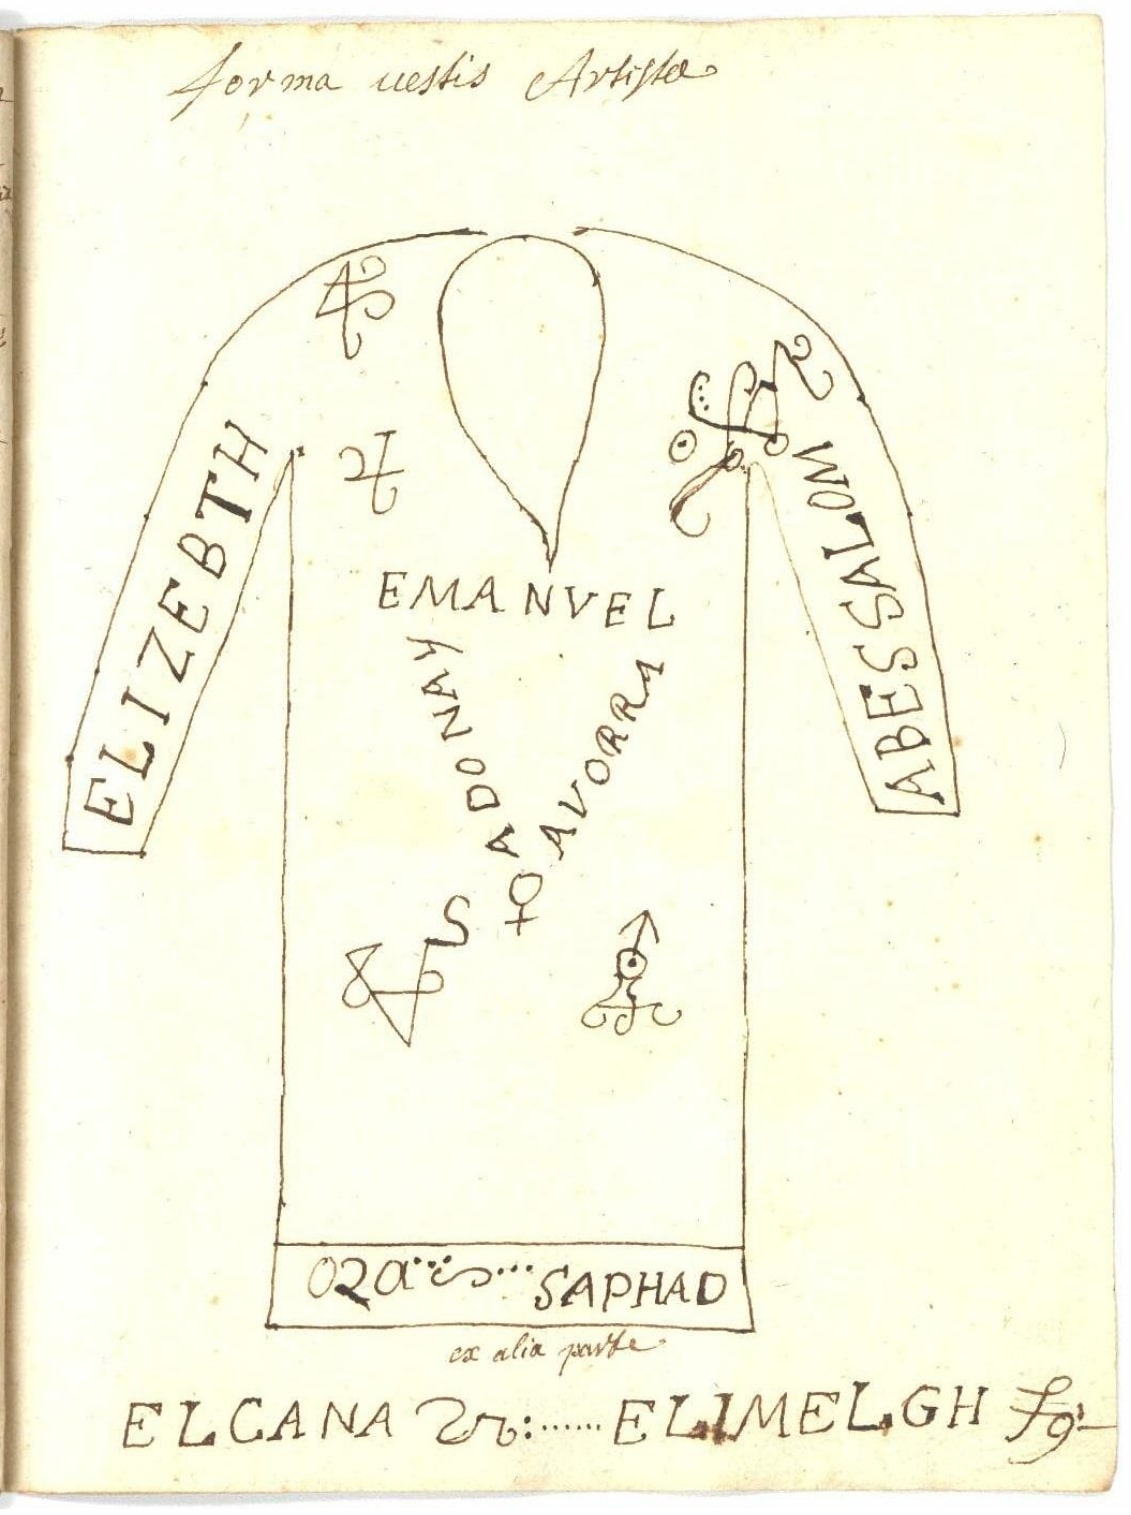 forma vestis Artistæ
ELIZEBTH
ABESSALOM
EMANVEL
ADONAY
AVORRA
♀
SAPHAD
ex alia parte
ELCANA
ELIMELGH